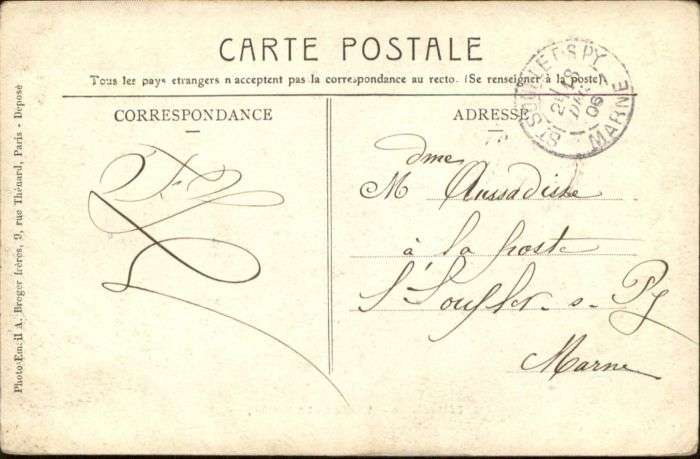 CARTE POSTALE
Tous les pays etrangers n'acceptent pas la correspondance au recto. (Se renseigner à la poste)
CORRESPONDANCE
ADRESSE
Mdme
à la poste
St Souplet-s-Py
Marne
ST SOUPLET-S-PY
MARNE
06
Photo-Emeil A. Breger frères, 9, rue Thénard, Paris - Déposé